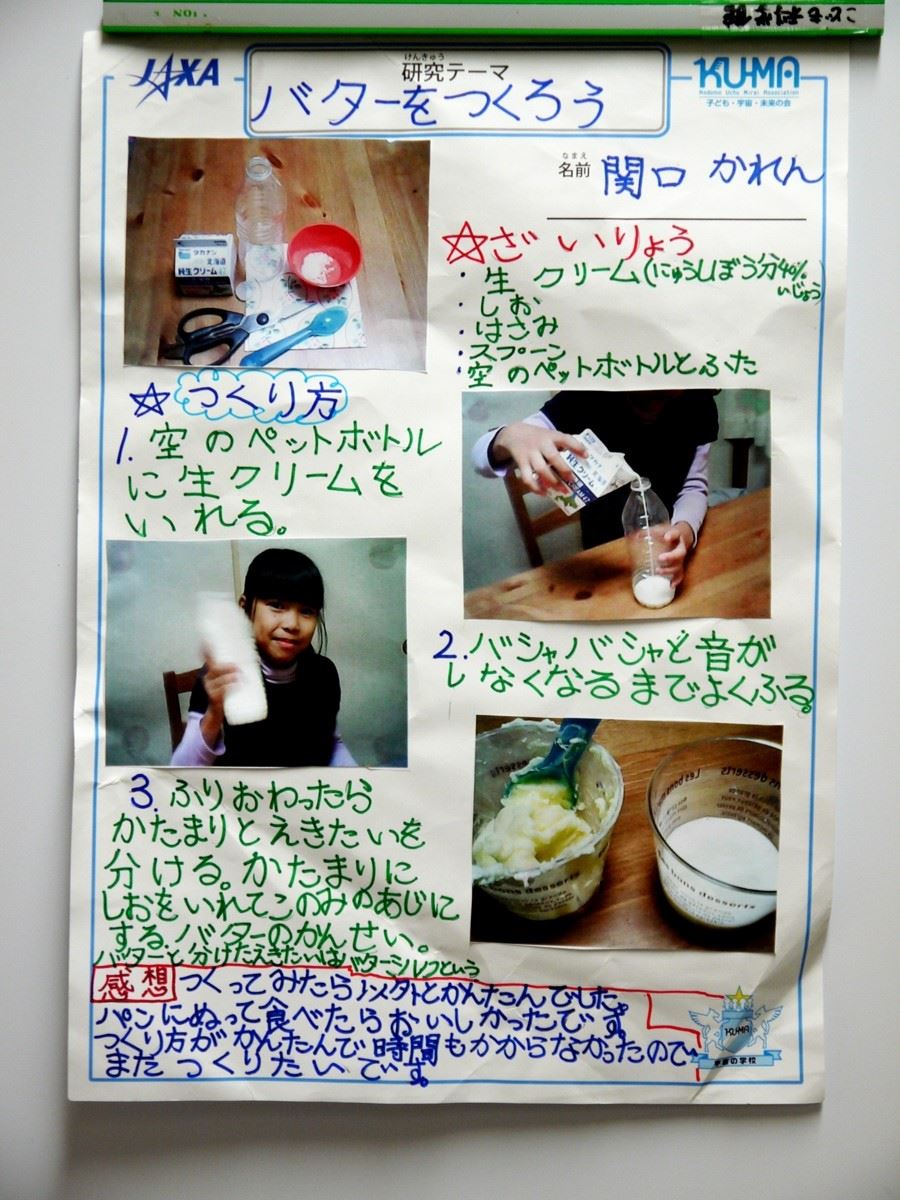 こども科学館
NO1.
JAXA
けんきゅう
研究テーマ
バターをつくろう
KU-MA
Kodomo Uchu Mirai Association
子ども・宇宙・未来の会
なまえ
名前 関口 かれん
☆ざいりょう
・生クリーム(にゅうしぼう分40%いじょう)
・しお
・はさみ
・スプーン
・空のペットボトルとふた
タカナシ
北海道
純生クリーム
☆つくり方
1. 空のペットボトル
に生クリームを
いれる。
タカナシ
純生クリーム
2. バシャバシャと音が
しなくなるまでよくふる。
3. ふりおわったら
かたまりとえきたいを
分ける。かたまりに
しおをいれてこのみのあじに
する。バターのかんせい。
バターと分けたえきたいはバターミルクという
bons desserts
Les bons desserts
bons desserts
感想 つくってみたらイメージとかんたんでした。
パンにぬって食べたらおいしかったです。
つくり方がかんたんで時間もかからなかったので
またつくりたいです。
KU-MA
宇宙の学校